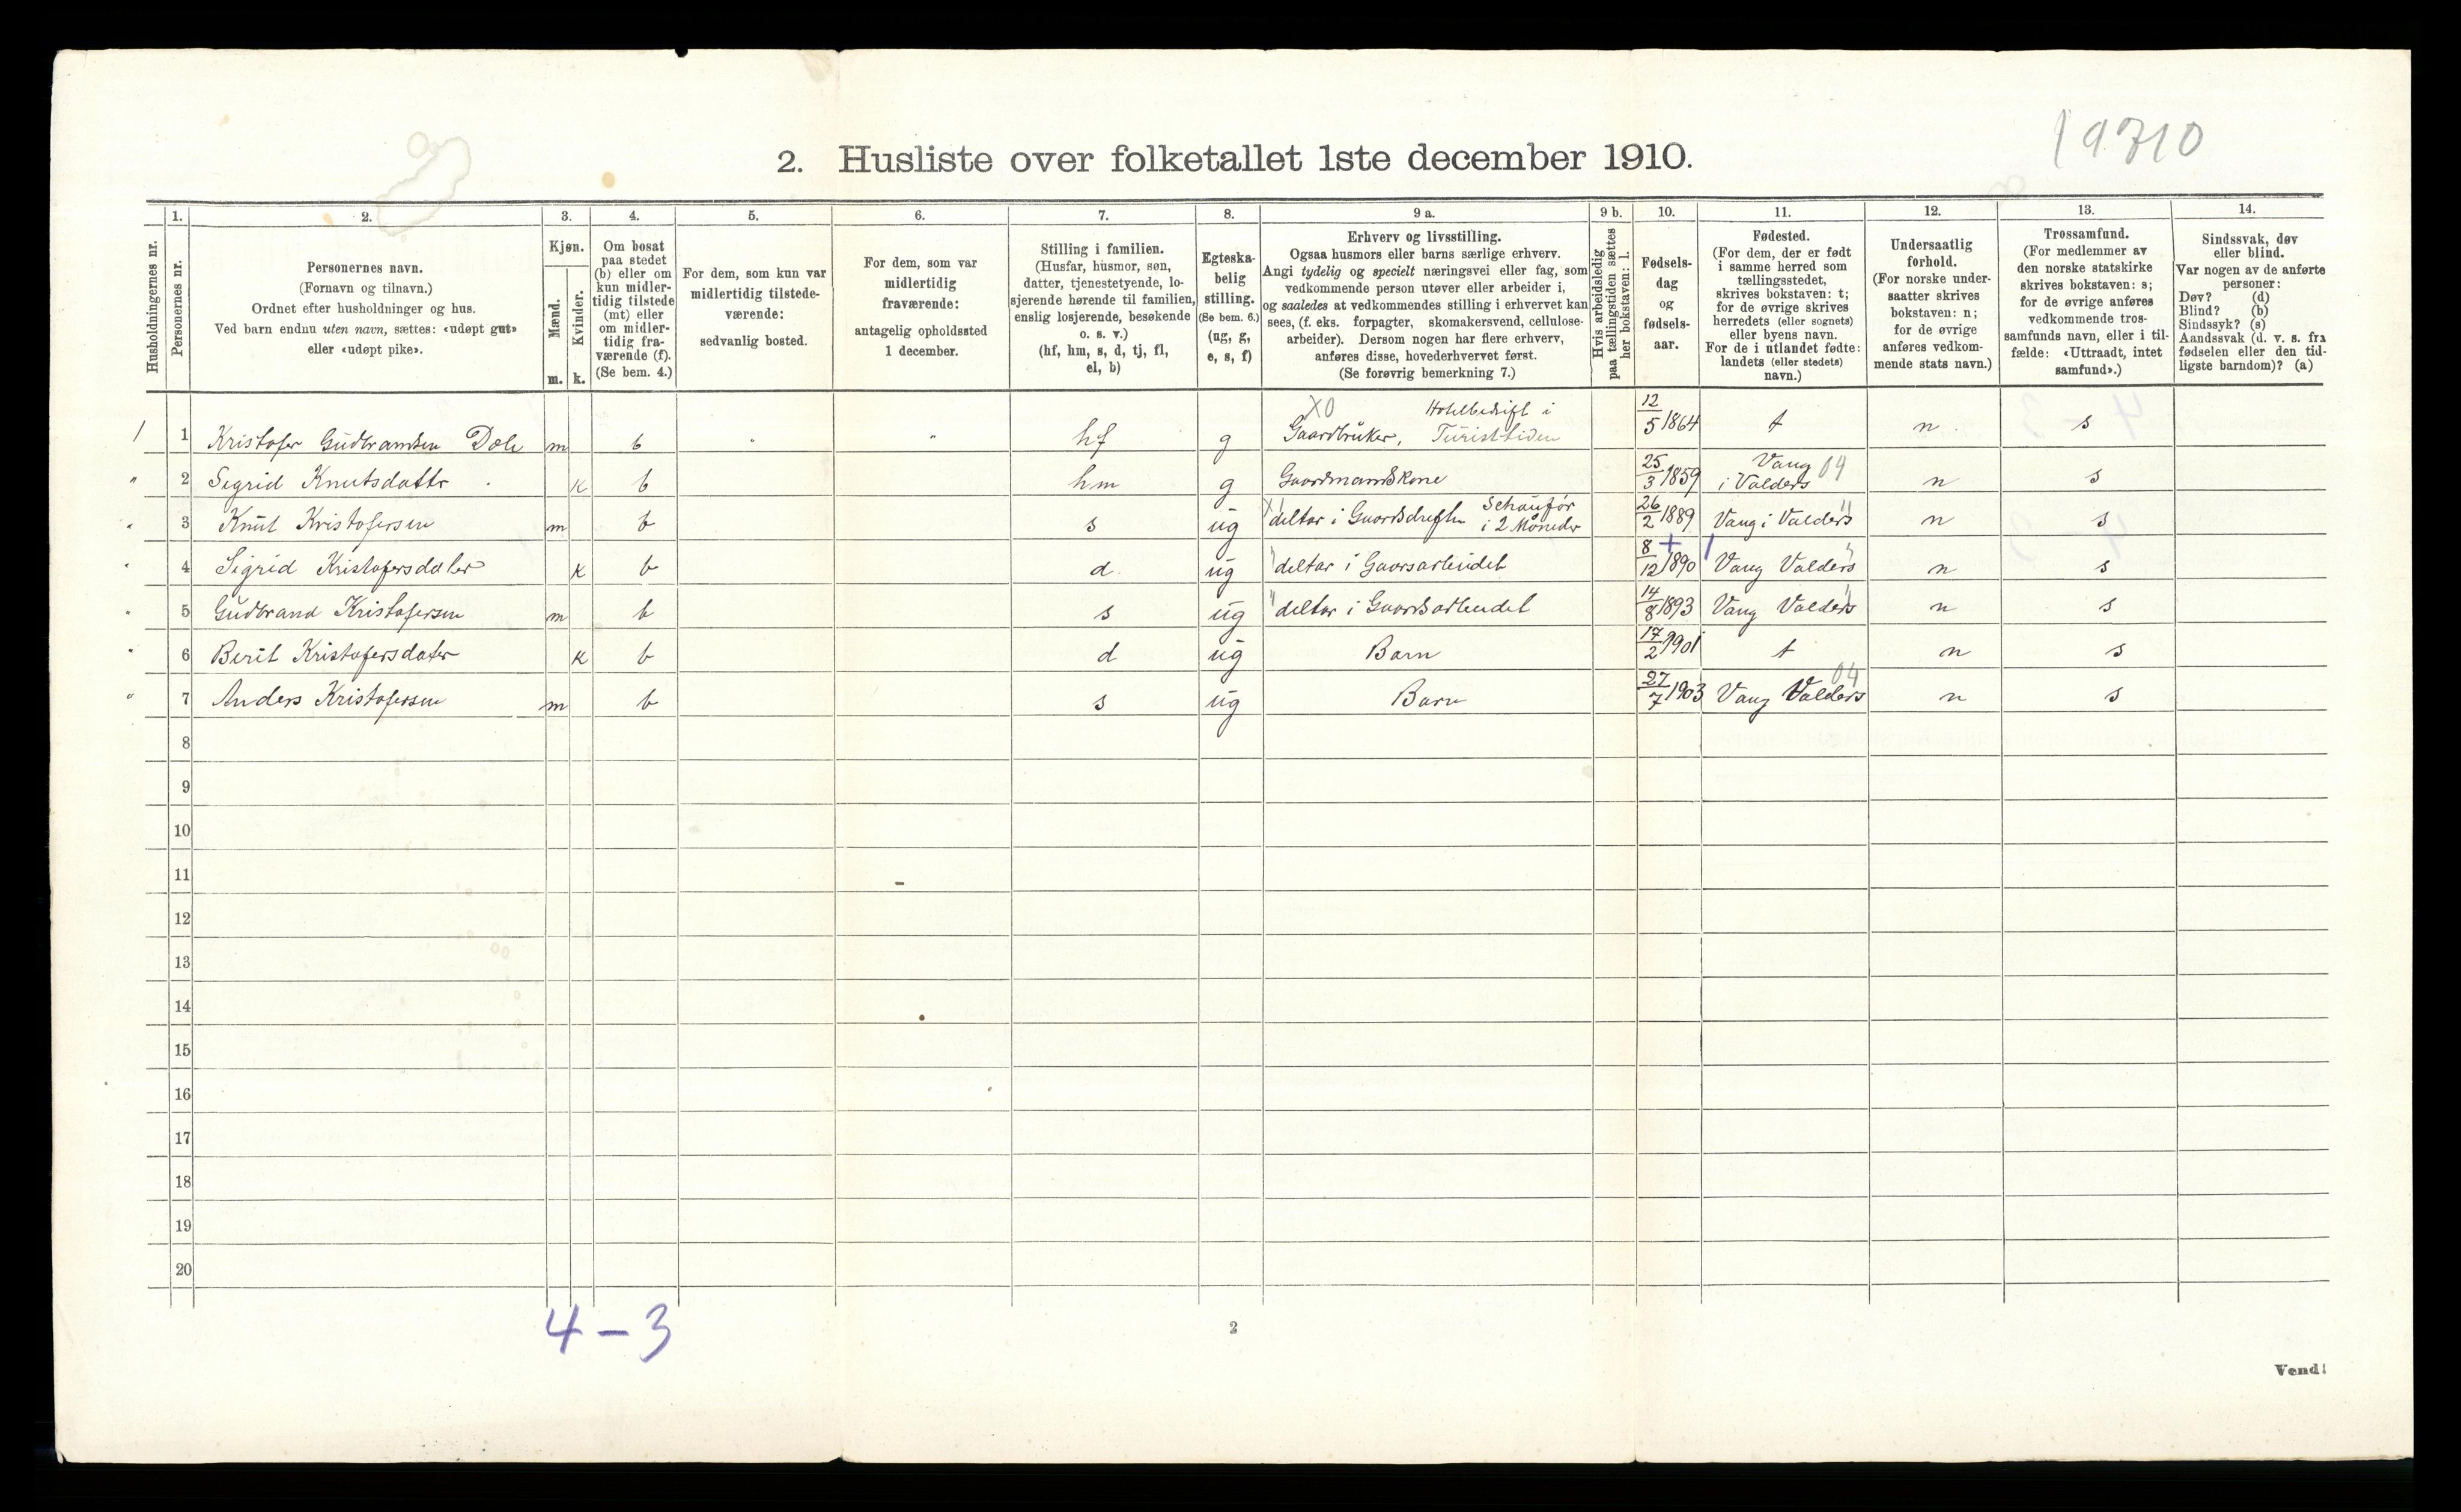 19710
2. Husliste over folketallet 1ste december 1910.
1. 2. 3. 4. 5. 6. 7. 8. 9 a. 9 b. 10. 11. 12. 13. 14.
Husholdningernes nr.
Personernes nr.
Personernes navn.
(Fornavn og tilnavn.)
Ordnet efter husholdninger og hus.
Ved barn endnu uten navn, sættes: «udøpt gut»
eller «udøpt pike».
Kjøn.
Mænd.
Kvinder.
m. k.
Om bosat
paa stedet
(b) eller om
kun midler-
tidig tilstede
(mt) eller
om midler-
tidig fra-
værende (f).
(Se bem. 4.)
For dem, som kun var
midlertidig tilstede-
værende:
sedvanlig bosted.
For dem, som var
midlertidig
fraværende:
antagelig opholdssted
1 december.
Stilling i familien.
(Husfar, husmor, søn,
datter, tjenestetyende, lo-
sjerende hørende til familien,
enslig losjerende, besøkende
o. s. v.)
(hf, hm, s, d, tj, fl,
el, b)
Egteska-
belig
stilling.
(Se bem. 6.)
(ug, g,
e, s, f)
Erhverv og livsstilling.
Ogsaa husmors eller barns særlige erhverv.
Angi tydelig og specielt næringsvei eller fag, som
vedkommende person utøver eller arbeider i,
og saaledes at vedkommendes stilling i erhvervet kan
sees, (f. eks. forpagter, skomakersvend, cellulose-
arbeider). Dersom nogen har flere erhverv,
anføres disse, hovederhvervet først.
(Se forøvrig bemerkning 7.)
Hvis arbeidsledig
paa tællingstiden sættes
her bokstaven: l.
Fødsels-
dag
og
fødsels-
aar.
Fødested.
(For dem, der er født
i samme herred som
tællingsstedet,
skrives bokstaven: t;
for de øvrige skrives
herredets (eller sognets)
eller byens navn.
For de i utlandet fødte:
landets (eller stedets)
navn.)
Undersaatlig
forhold.
(For norske under-
saatter skrives
bokstaven: n;
for de øvrige
anføres vedkom-
mende stats navn.)
Trossamfund.
(For medlemmer av
den norske statskirke
skrives bokstaven: s;
for de øvrige anføres
vedkommende tros-
samfunds navn, eller i til-
fælde: «Uttraadt, intet
samfund».)
Sindssvak, døv
eller blind.
Var nogen av de anførte
personer:
Døv? (d)
Blind? (b)
Sindssyk? (s)
Aandssvak (d. v. s. fra
fødselen eller den tid-
ligste barndom)? (a)
X0 Hotelbedrift i
1 1 Kristofer Gudbrandsen Dole m b " " hf g Gaardbruker, Turisttiden 12/5 1864 t n s
" 2 Sigrid Knutsdattr k b hm g Gaardmandskone 25/3 1859 Vang i Valders 04 n s
" 3 Knut Kristofersen m b s ug deltar i Gaardsdriften Schauför i 2 Måneder 26/2 1889 Vang i Valders " n s
" 4 Sigrid Kristofersdater k b d ug " deltar i Gaarsarbeidet 8/12 1890 Vang Valders " n s
" 5 Gudbrand Kristofersen m b s ug " deltar i Gaardsarbeidet 14/8 1893 Vang Valders " n s
" 6 Berit Kristofersdater k b d ug Barn 17/2 1901 t n s
" 7 Anders Kristofersen m b s ug Barn 27/7 1903 Vang Valders 04 n s
8
9
10
11
12
13
14
15
16
17
18
19
20
4 – 3
2
Vend!